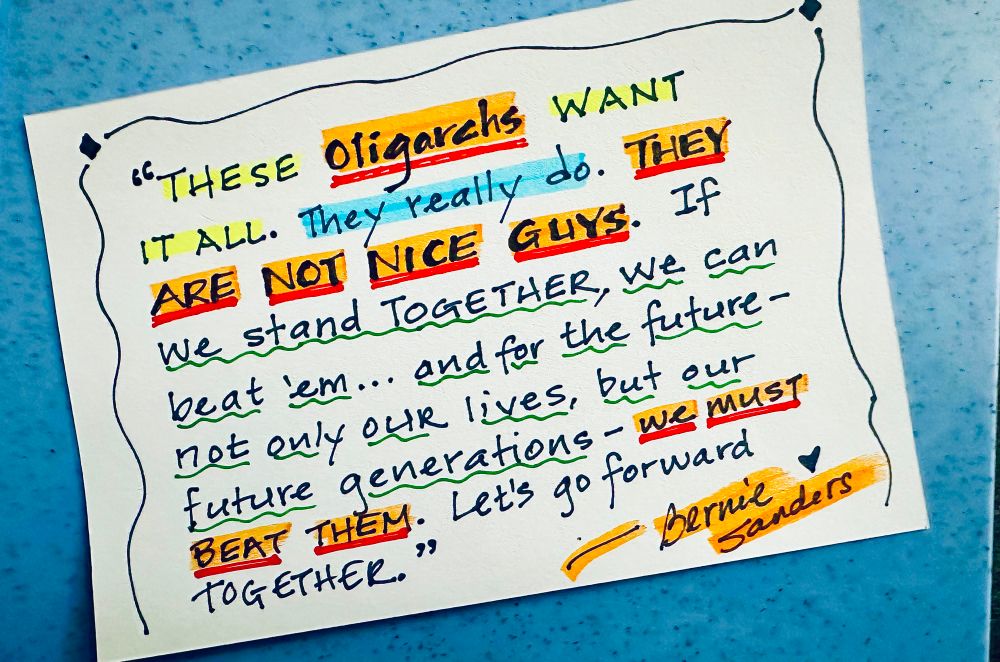 “THESE Oligarchs WANT
IT ALL. They really do. THEY
ARE NOT NICE GUYS. If
we stand TOGETHER, we can
beat 'em... and for the future–
not only OUR lives, but our
future generations – we must
BEAT THEM. Let's go forward
TOGETHER.”
— Bernie
Sanders